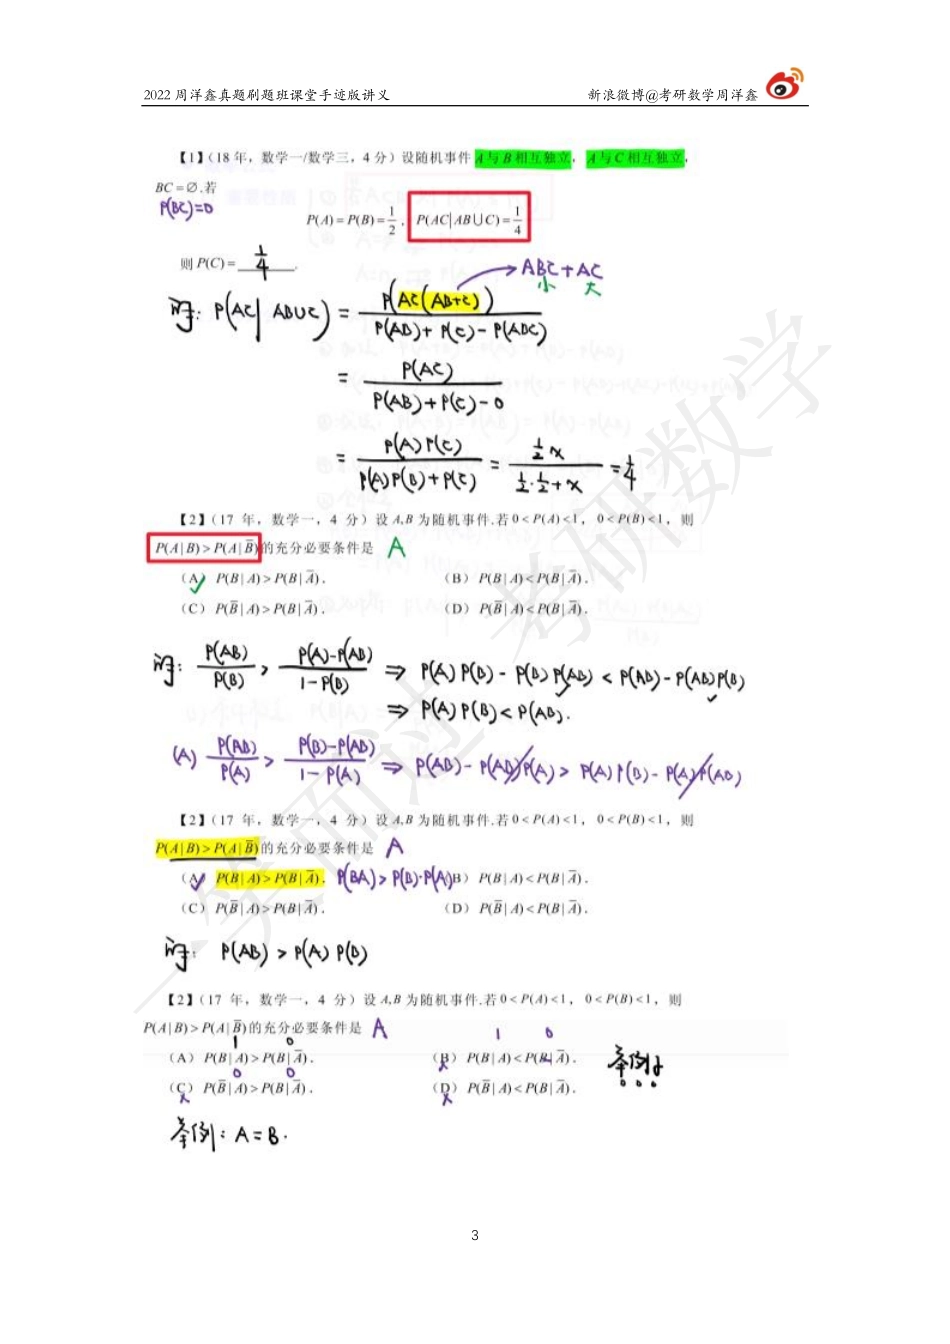 2022 周洋鑫真题刷题班课堂手迹版讲义 新浪微博@考研数学周洋鑫
【1】(18 年, 数学一/数学三, 4 分) 设随机事件 A与B相互独立, A与C相互独立,
BC=∅.若
P(BC)=0
P(A)=P(B)=1/2, P(AC|AB∪C)=1/4
则 P(C)= 1/4 .
ABC+AC
小 大
P(AC|AB∪C) = P(AC(AB+C)) / (P(AB)+P(C)-P(ABC))
= P(AC) / (P(AB)+P(C)-0)
= P(A)P(C) / (P(A)P(B)+P(C)) = (1/2 x) / (1/2·1/2+x) = 1/4
【2】(17 年, 数学一, 4 分) 设 A,B 为随机事件.若 0<P(A)<1, 0<P(B)<1, 则
P(A|B)>P(A|B̅)的充分必要条件是 A
(A) P(B|A)>P(B|A̅). (B) P(B|A)<P(B|A̅).
(C) P(B̅|A)>P(B|A̅). (D) P(B̅|A)<P(B|A̅).
P(AB)/P(B) > (P(A)-P(AB))/(1-P(B)) ⇒ P(A)P(B)-P(B)P(AB) < P(AB)-P(AB)P(B)
⇒ P(A)P(B)<P(AB).
(A) P(AB)/P(A) > (P(B)-P(AB))/(1-P(A)) ⇒ P(AB)-P(AB)P(A) > P(A)P(B)-P(A)P(AB)
【2】(17 年, 数学一, 4 分) 设 A,B 为随机事件.若 0<P(A)<1, 0<P(B)<1, 则
P(A|B)>P(A|B̅)的充分必要条件是 A
(A) P(B|A)>P(B|A̅). P(BA)>P(B)·P(A) (B) P(B|A)<P(B|A̅).
(C) P(B̅|A)>P(B|A̅). (D) P(B̅|A)<P(B|A̅).
P(AB)>P(A)P(B)
【2】(17 年, 数学一, 4 分) 设 A,B 为随机事件.若 0<P(A)<1, 0<P(B)<1, 则
P(A|B)>P(A|B̅)的充分必要条件是 A
1 0 1 0
(A) P(B|A)>P(B|A̅). (B) P(B|A)<P(B|A̅). 举例子
0 0
(C) P(B̅|A)>P(B|A̅). (D) P(B̅|A)<P(B|A̅).
举例: A=B.
一笑而过 考研数学
3